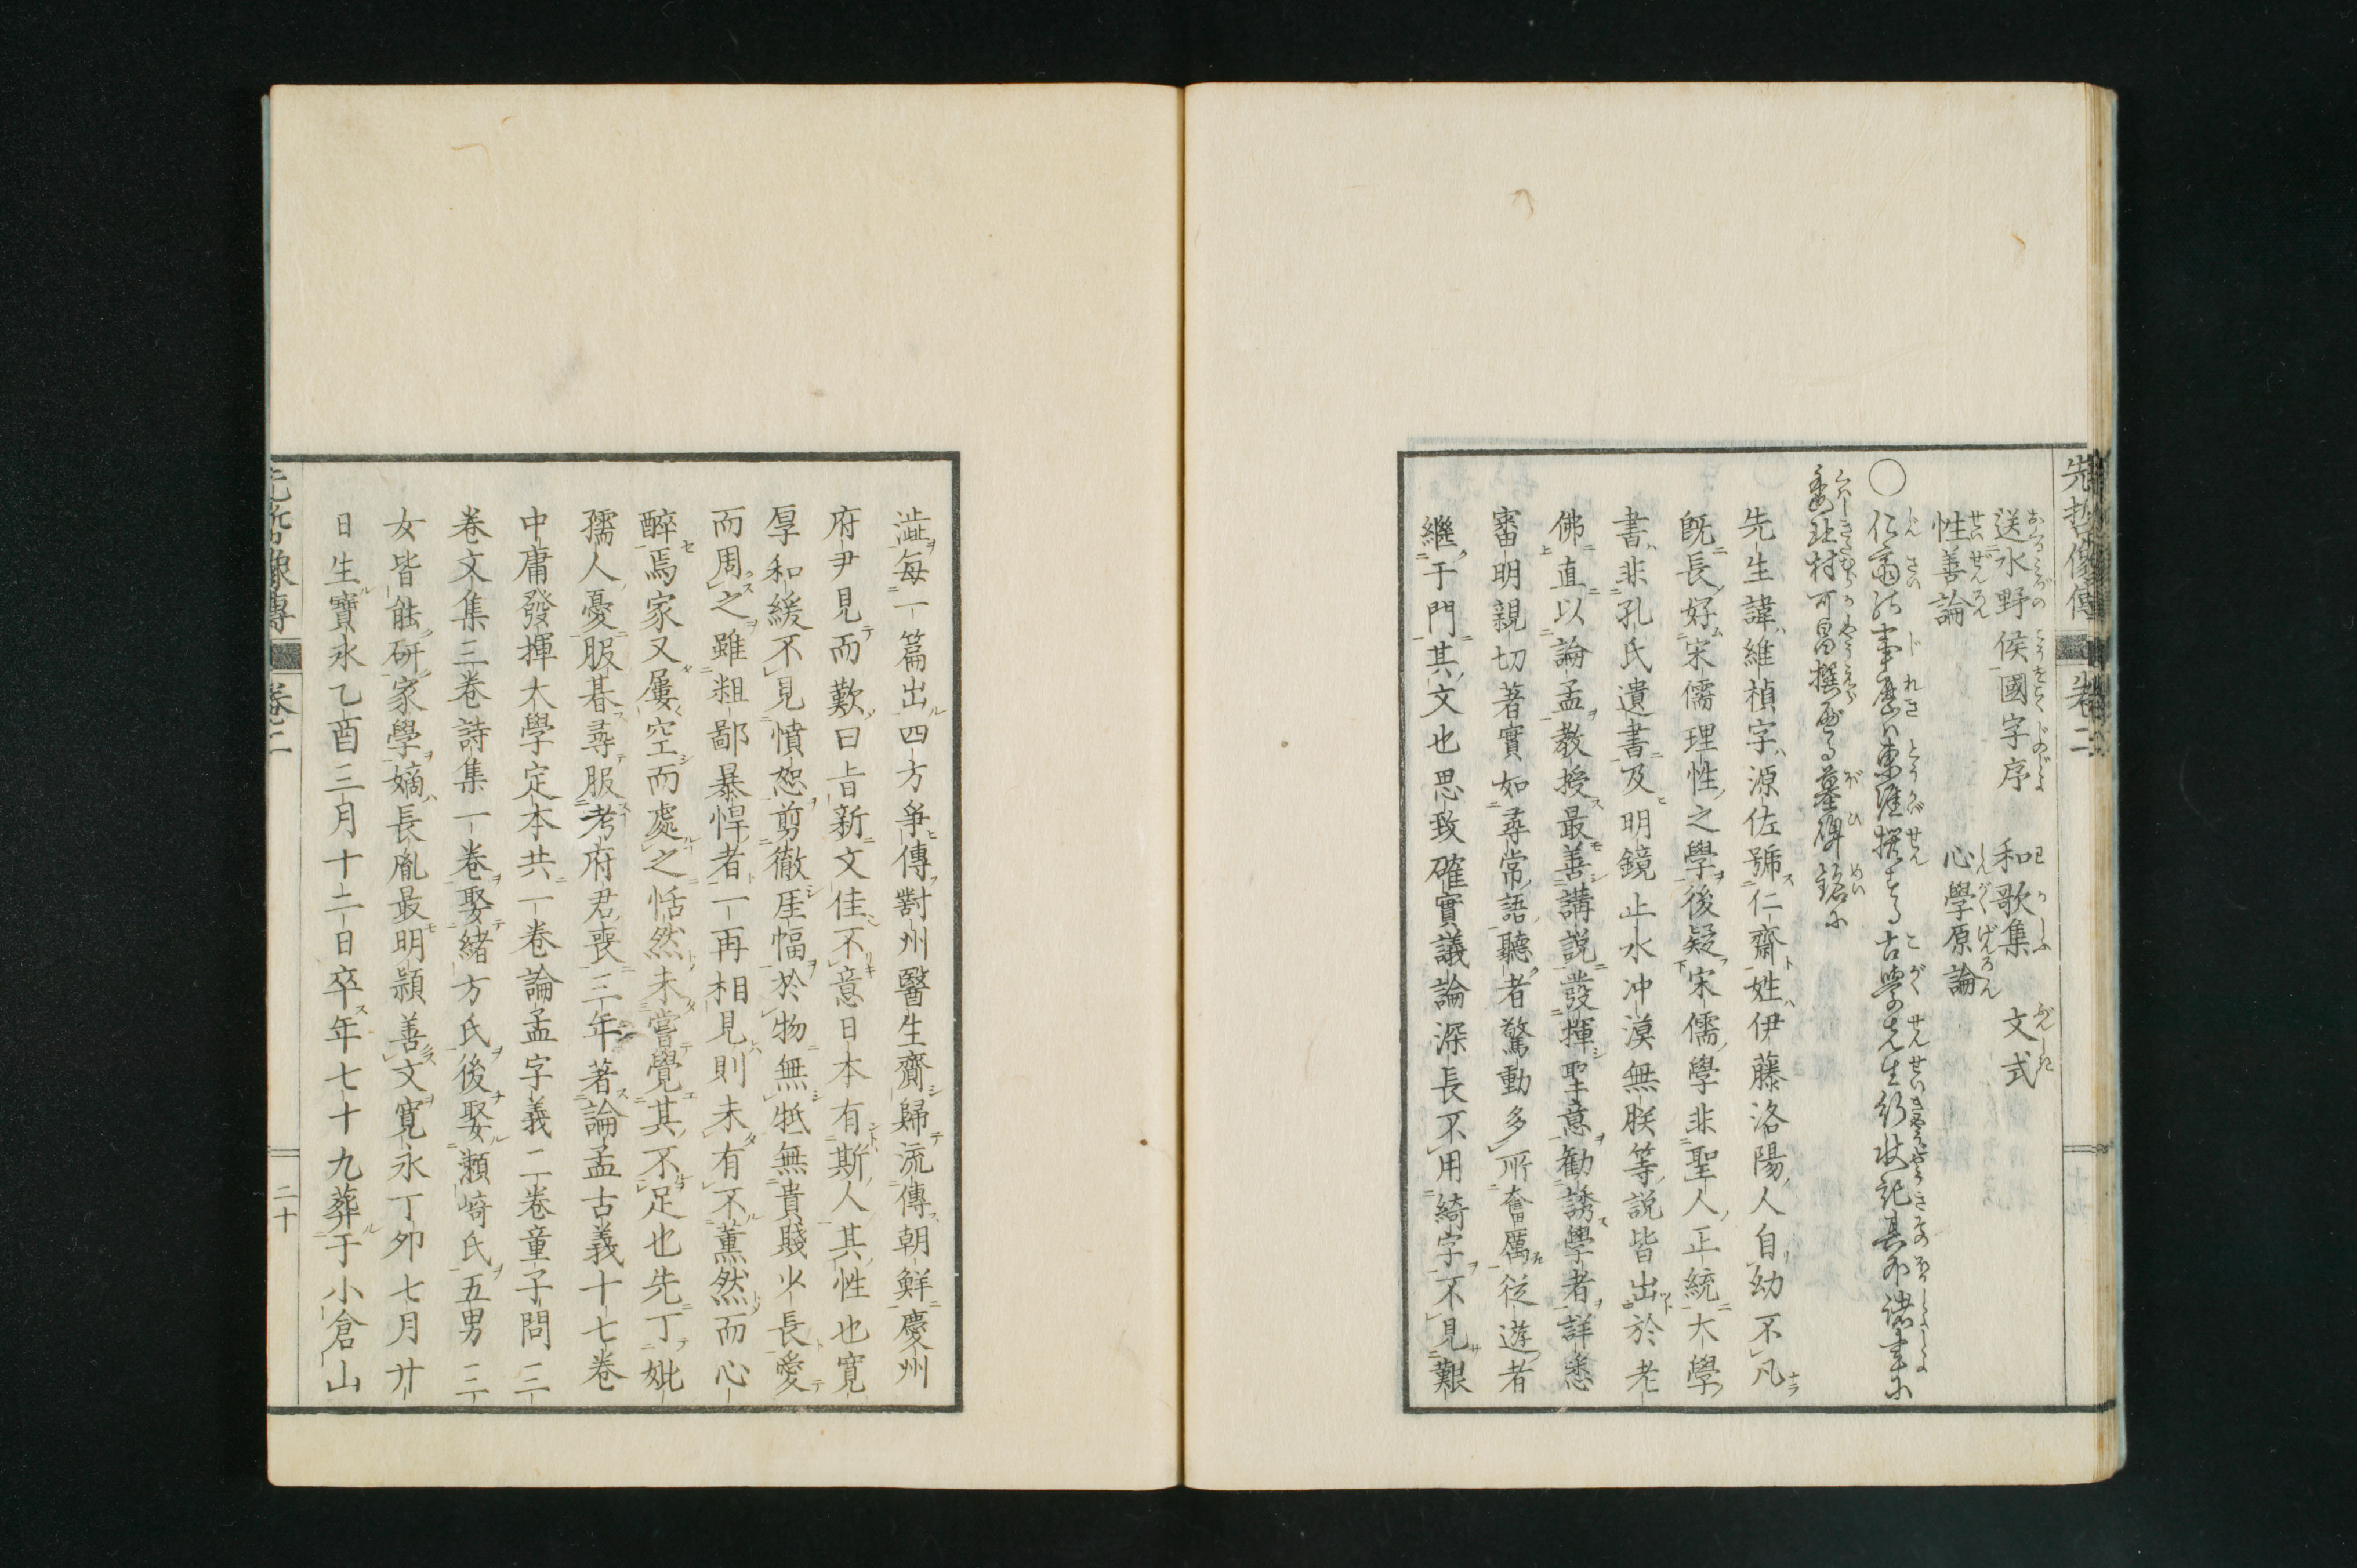 先哲像傳 卷二
送水野侯國字序 和歌集 文式
性善論 心學原論
○仁齋の事歷ハ東涯撰する古學先生行狀記其外諸書に
委し北村可昌撰める墓碑銘に
先生諱維楨字源佐號仁齋姓伊藤洛陽人自幼不凡
既長好宋儒理性之學後疑宋儒學非聖人正統大學
書非孔氏遺書及明鏡止水冲漠無朕等說皆出於老
佛直以論孟教授最善講說發揮聖意勧誘學者詳悉
審明親切著實如尋常語聽者驚動多所奮厲從遊者
繼于門其文也思致確實議論深長不用綺字不見艱
澁每一篇出四方爭傳對州醫生齎歸流傳朝鮮慶州
府尹見而歎曰旨新文佳不意日本有斯人其性也寬
厚和緩不見憤怨剪徹厓幅於物無牴無貴賤少長愛
而周之雖粗鄙暴悍者一再相見則未有不薫然而心
醉焉家又屢空而處之恬然未嘗覺其不足也先丁妣
孺人憂服朞尋服考府君喪三年著論孟古義十七卷
中庸發揮大學定本共一卷論孟字義二卷童子問三
卷文集三卷詩集一卷娶緒方氏後娶瀬崎氏五男三
女皆能研家學嫡長胤最明頴善文寬永丁卯七月廿
日生寶永乙酉三月十二日卒年七十九葬于小倉山
先哲像傳 卷二 二十